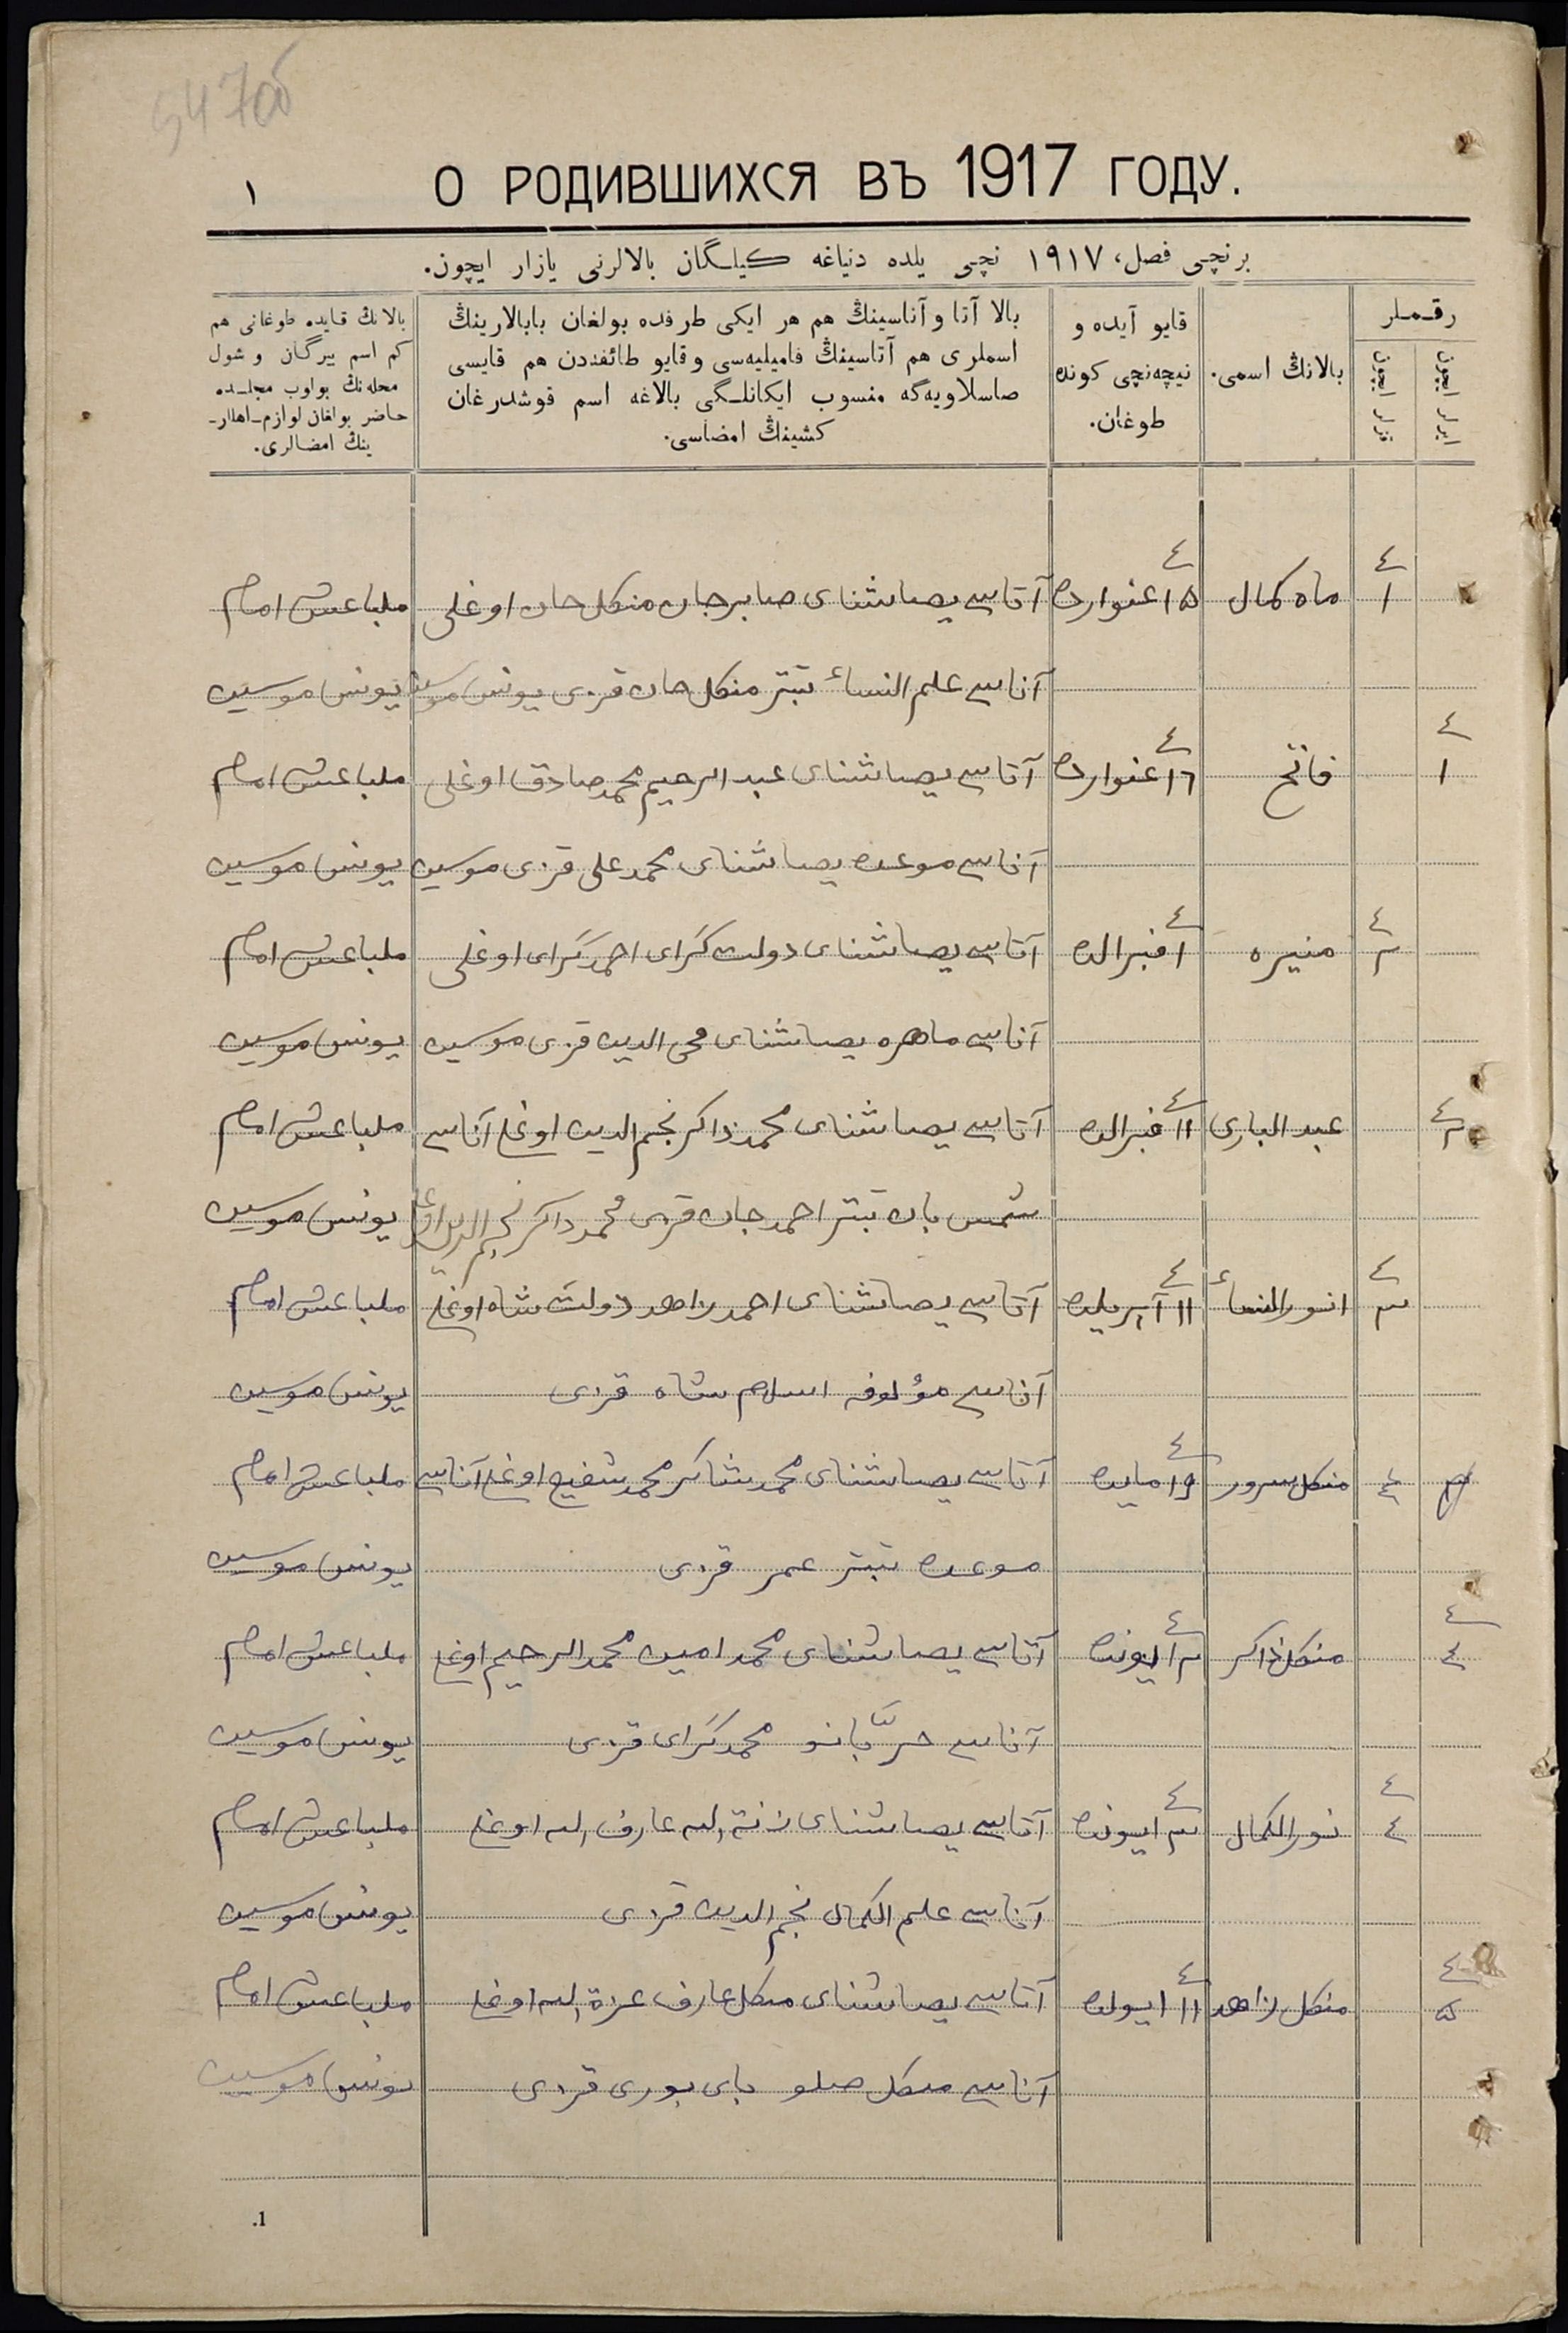 547об
О РОДИВШИХСЯ ВЪ 1917 ГОДУ.
١
برنچی فصل، ١٩١٧ نچی یلده دنیاغه كیلـگان بالالرنی یازار ایچون.
رقـملر
ایرلر ایچون
قزلر ایچون
بالانڭ اسمی.
قایو آیده و
نیچه‌نچی كونده
طوغان.
بالا آتا و آناسینڭ هم هر ایكی طرفده بولغان بابالارینڭ
اسملری هم آتاسینڭ فامیلیه‌سی و قایو طائفه‌دن هم قایسی
صاسلاویه‌گه منسوب ایكانلـگی بالاغه اسم قوشدرغان
كشینڭ امضاسی.
بالانڭ قایده طوغانی هم
كم اسم بیرگان و شول
محله‌نڭ بولوب مجلـده
حاضر بولغان لوازم-اهللر-
ینڭ امضالری.
٤ ١ ماه كمال ١٥ غنوارده ٤ آتاسی یصاشنای صابرجان منكل جان اوغلی امام
آناسی علم النساء تبتر منكل جان قزی یونس موسین یونس موسین
٤ ١ فاتح ١٦ غنوارده ٤ آتاسی یصاشنای عبد الرحیم محمد صادق اوغلی امام
آناسی یصاشنای محمد علی قزی موسین یونس موسین
٤ ٢ منیره ١ فبرالده ٤ آتاسی یصاشنای دولت گرای احمد گرای اوغلی امام
آناسی ماهره یصاشنای محی الدین قزی موسین یونس موسین
٤ ٢ عبد الباری ١١ فبرالده ٤ آتاسی یصاشنای محمد ذاكر نجم الدین اوغلی آناسی امام
شمس بان تبتر احمد جان قزی محمد ذاكر نجم الدین اوغلی یونس موسین
٤ ٣ انور النساء ١١ آپریلده ٤ آتاسی یصاشنای احمد زاهد دولت شاه اوغلی امام
آناسی مؤلوفه اسلام شاه قزی یونس موسین
٣ ٤ منكل سرور ١٩ مایده ٤ آتاسی یصاشنای محمد شاكر محمد شفیع اوغلی آناسی امام
تبتر عمر قزی یونس موسین
٤ ٤ منكل ذاكر ٢ ایونده ٤ آتاسی یصاشنای محمد امین محمد الرحیم اوغلی امام
آناسی بانو محمد گرای قزی یونس موسین
٤ ٤ نور الكمال ٣ ایونده ٤ آتاسی یصاشنای الله عارف الله اوغلی امام
آناسی علم الكمال نجم الدین قزی یونس موسین
٤ ٥ منكل زاهد ١١ ایولده ٤ آتاسی یصاشنای منكل عارف عزة الله اوغلی امام
آناسی منكل صلو بای بوری قزی یونس موسین
1.